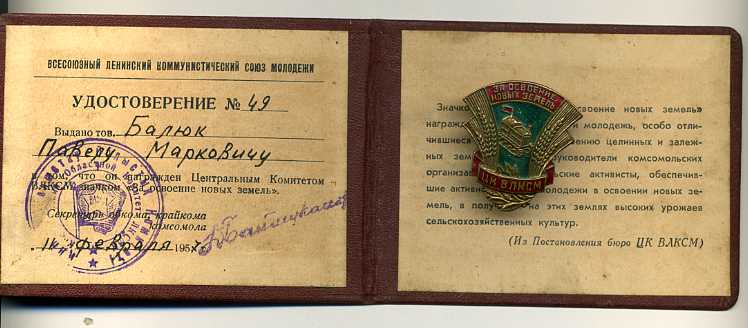 ВСЕСОЮЗНЫЙ ЛЕНИНСКИЙ КОММУНИСТИЧЕСКИЙ СОЮЗ МОЛОДЕЖИ
УДОСТОВЕРЕНИЕ № 49
Выдано тов. Балюк
Павелу Марковичу
в том, что он награжден Центральным Комитетом
ВЛКСМ значком «За освоение новых земель».
Секретарь обкома, крайкома
комсомола
14 февраля 1957
ЗА ОСВОЕНИЕ
НОВЫХ ЗЕМЕЛЬ
ЦК ВЛКСМ
Значко освоение новых земель»
награжд молодежь, особо отли-
чившиеся ению целинных и залеж-
ных зем руководители комсомольских
организа ельские активисты, обеспечив-
шие актив молодежи в освоении новых зе-
мель, в полу на этих землях высоких урожаев
сельскохозяйственных культур.
(Из Постановления бюро ЦК ВЛКСМ)